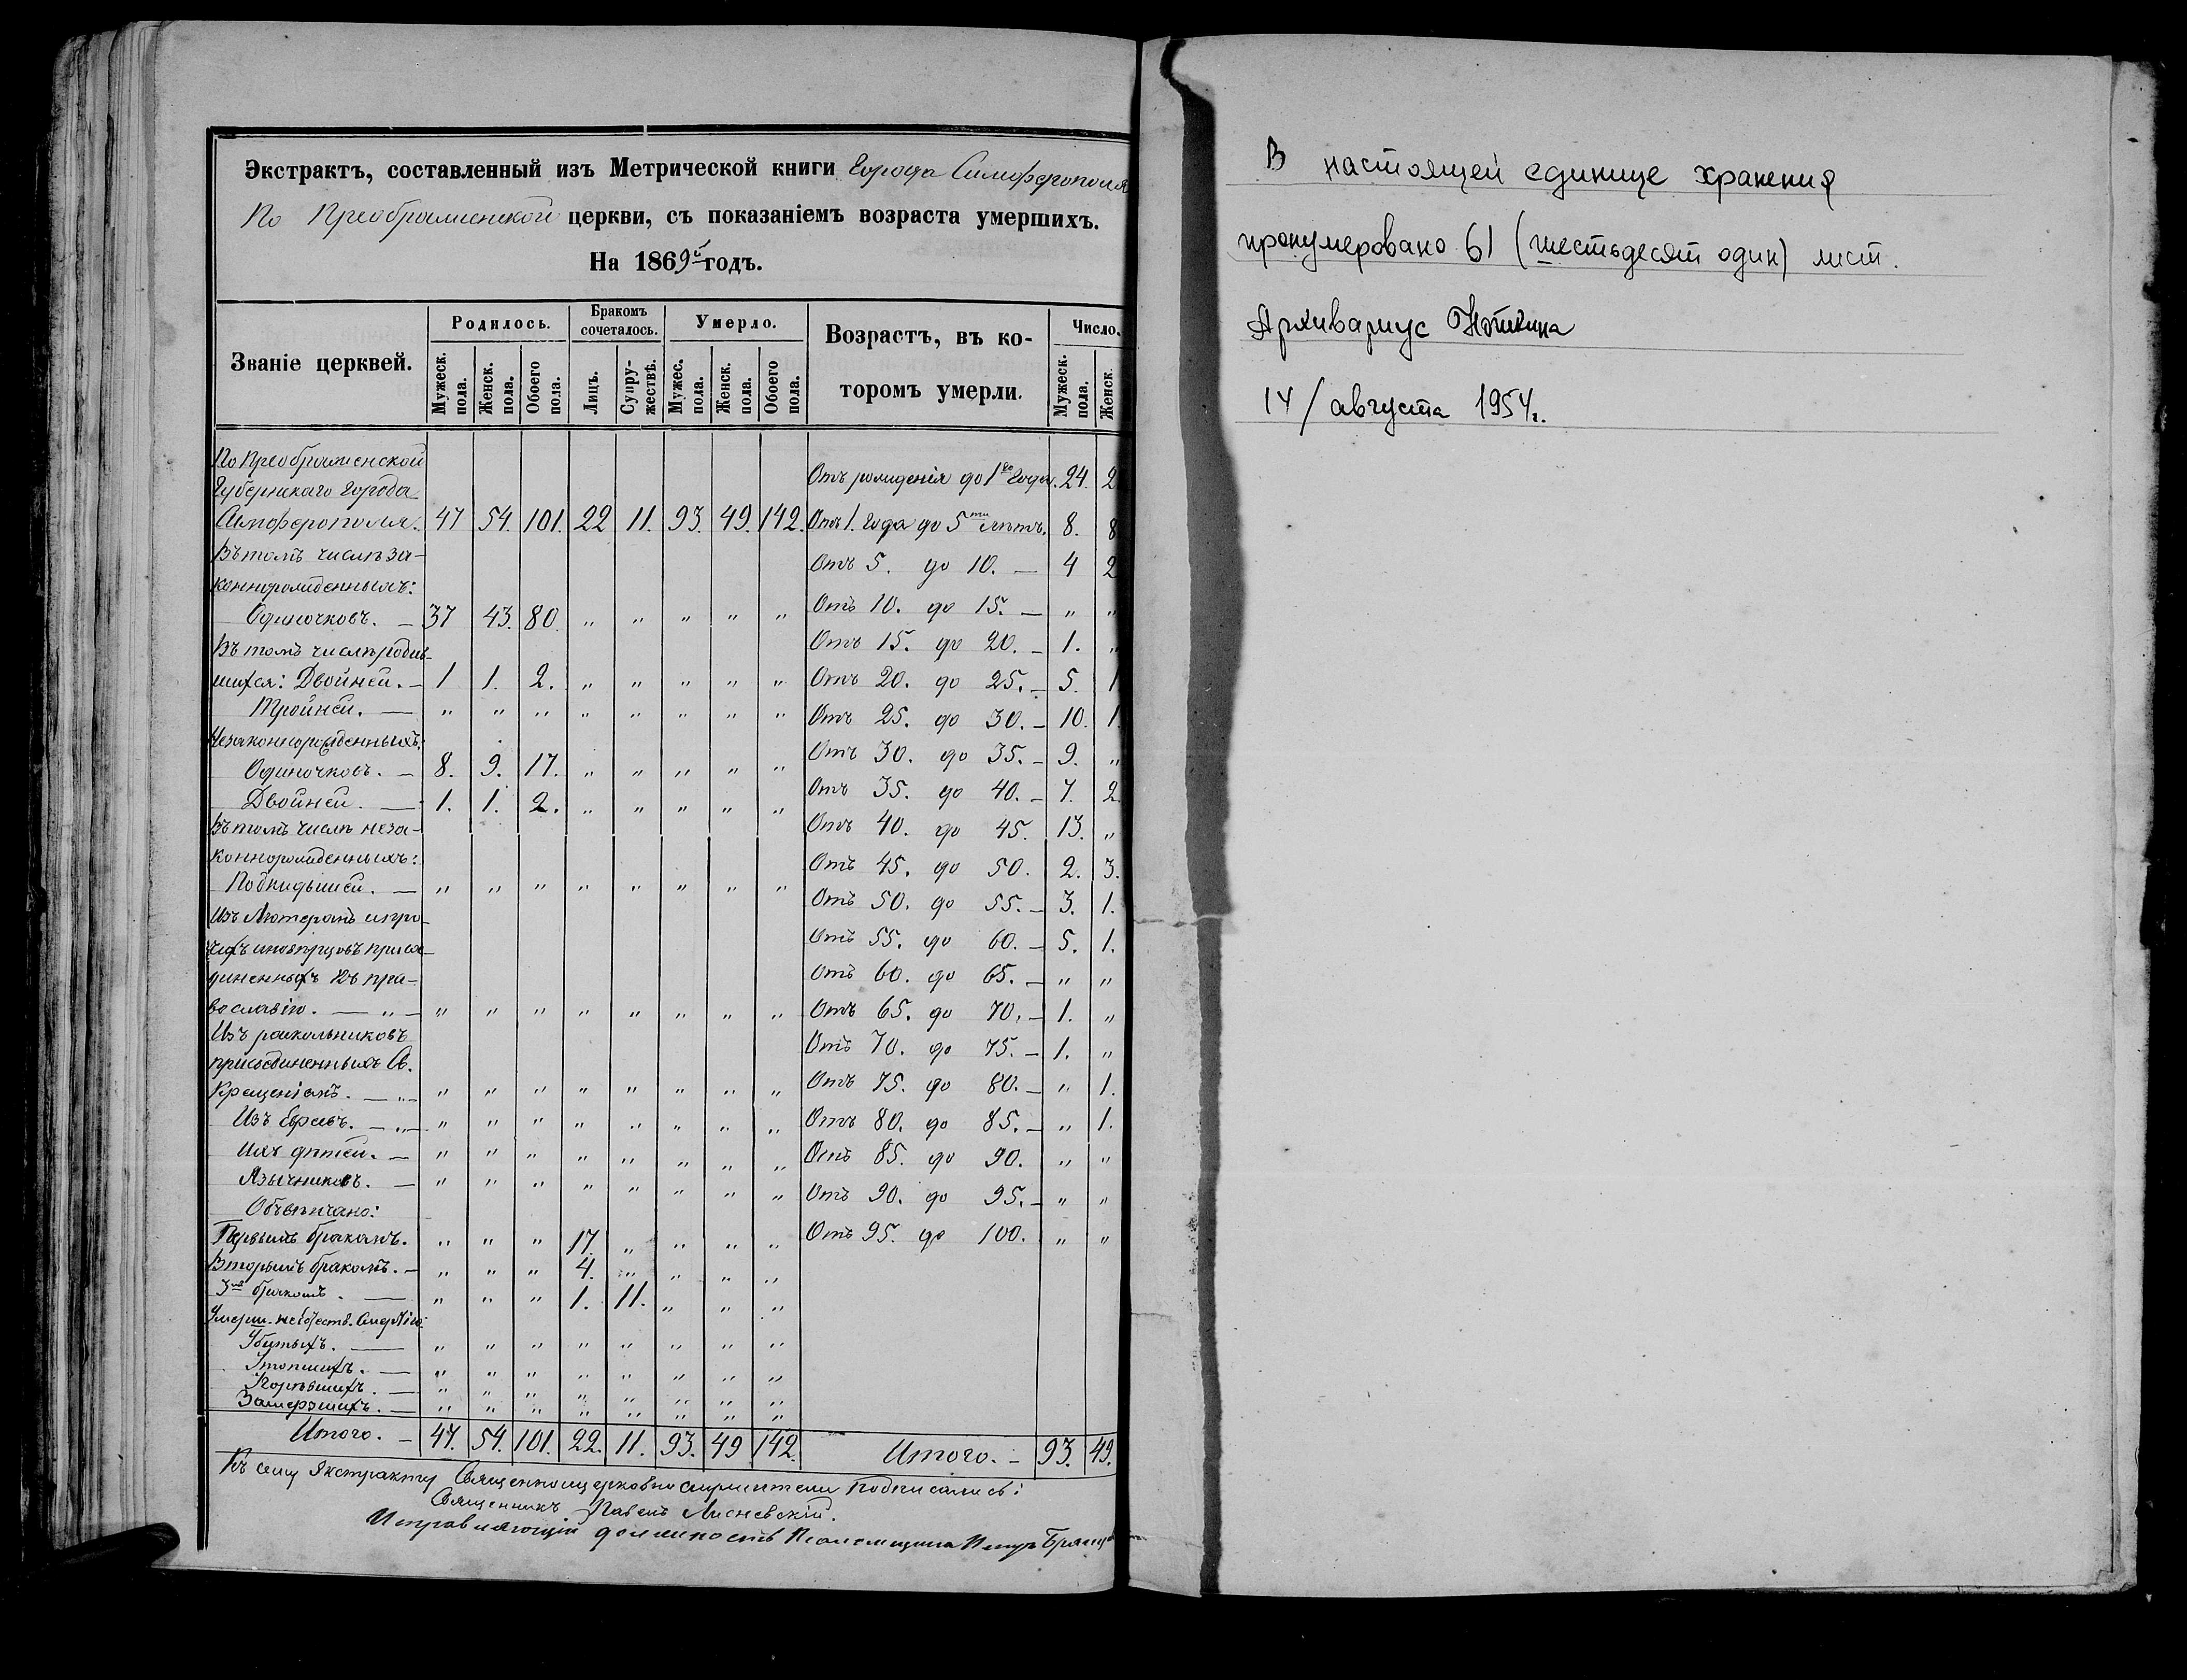 Экстрактъ, составленный изъ Метрической книги Города Симферополя
По Преображенской церкви, съ показаніемъ возраста умершихъ.
На 1869й годъ.
Званіе церквей. Родилось. Бракомъ сочеталось. Умерло. Возрастъ, въ котором умерли. Число.
Мужеск. пола. Женск. пола. Обоего пола. Лицъ. Супружествъ. Мужес. пола. Женск. пола. Обоего пола. Мужеск. пола. Женск.
По Преображенской
Губернскаго города Отъ рожденія до 1го года. 24. 2
Симферополя. 47 54. 101. 22 11. 93. 49. 142. Отъ 1. года до 5ти лѣтъ. 8. 8
Въ томъ числѣ за-
коннорожденныхъ: Отъ 5. до 10. — 4 2
Одиночковъ. — 37 43. 80. „ „ „ „ „ Отъ 10. до 15. — „ „
Въ томъ числѣ родив- Отъ 15. до 20. — 1. „
шихся: Двойней. — 1 1. 2. „ „ „ „ „ Отъ 20. до 25. — 5. 1
Тройней. — „ „ „ „ „ „ „ „ Отъ 25. до 30. — 10. 1.
Незаконнорожденныхъ: Отъ 30. до 35. — 9. „
Одиночковъ. — 8. 9. 17. „ „ „ „ „
Двойней. — 1. 1. 2. „ „ „ „ „ Отъ 35. до 40. — 7. 2.
Въ томъ числѣ неза- Отъ 40. до 45. 13. „
коннорожденныхъ: Отъ 45. до 50. 2. 3.
Подкидышей. — „ „ „ „ „ „ „ „
Изъ Лютеранъ и про- Отъ 50. до 55. — 3. 1.
чихъ иновѣрцовъ присо- Отъ 55. до 60. — 5. 1.
диненныхъ къ пра- Отъ 60. до 65. — „ „
вославію. — „ — „ „ „ „ „ „ „ „ Отъ 65. до 70. — 1. „
Изъ раскольниковъ Отъ 70. до 75. — 1. „
присоединенныхъ Св.
Крещеніемъ. — „ — „ „ „ „ „ „ „ „ Отъ 75. до 80. — „ 1.
Изъ Евреевъ. — „ — „ „ „ „ „ „ „ „ Отъ 80. до 85. — „ 1.
Ихъ дѣтей. — „ „ „ „ „ „ „ „ Отъ 85. до 90. „ „
Язычниковъ. — „ „ „ „ „ „ „ „ Отъ 90. до 95. — „ „
Обвѣнчано:
Первымъ бракомъ. „ „ „ 17. „ „ „ „ Отъ 95. до 100. „ „
Вторымъ бракомъ. — „ „ „ 4. „ „ „ „
3мъ бракомъ. — „ „ „ 1. 11. „ „ „
Убитыхъ. — „ „ „ „ „ „ „ „
Утопшихъ. — „ „ „ „ „ „ „ „
Згорѣвшихъ. — „ „ „ „ „ „ „ „
Замерзшихъ. — „ „ „ „ „ „ „ „
Итого. — 47. 54. 101. 22. 11. 93. 49 142. Итого. — 93. 49.
Къ сему Экстракту Священноцерковнослужители подписались:
Священникъ Павелъ Лисневскій.
Исправляющій должность Псаломщика Петръ
В настоящей единице хранения
пронумеровано 61 (шестьдесят один) лист.
Архивариус
14/августа 1954г.